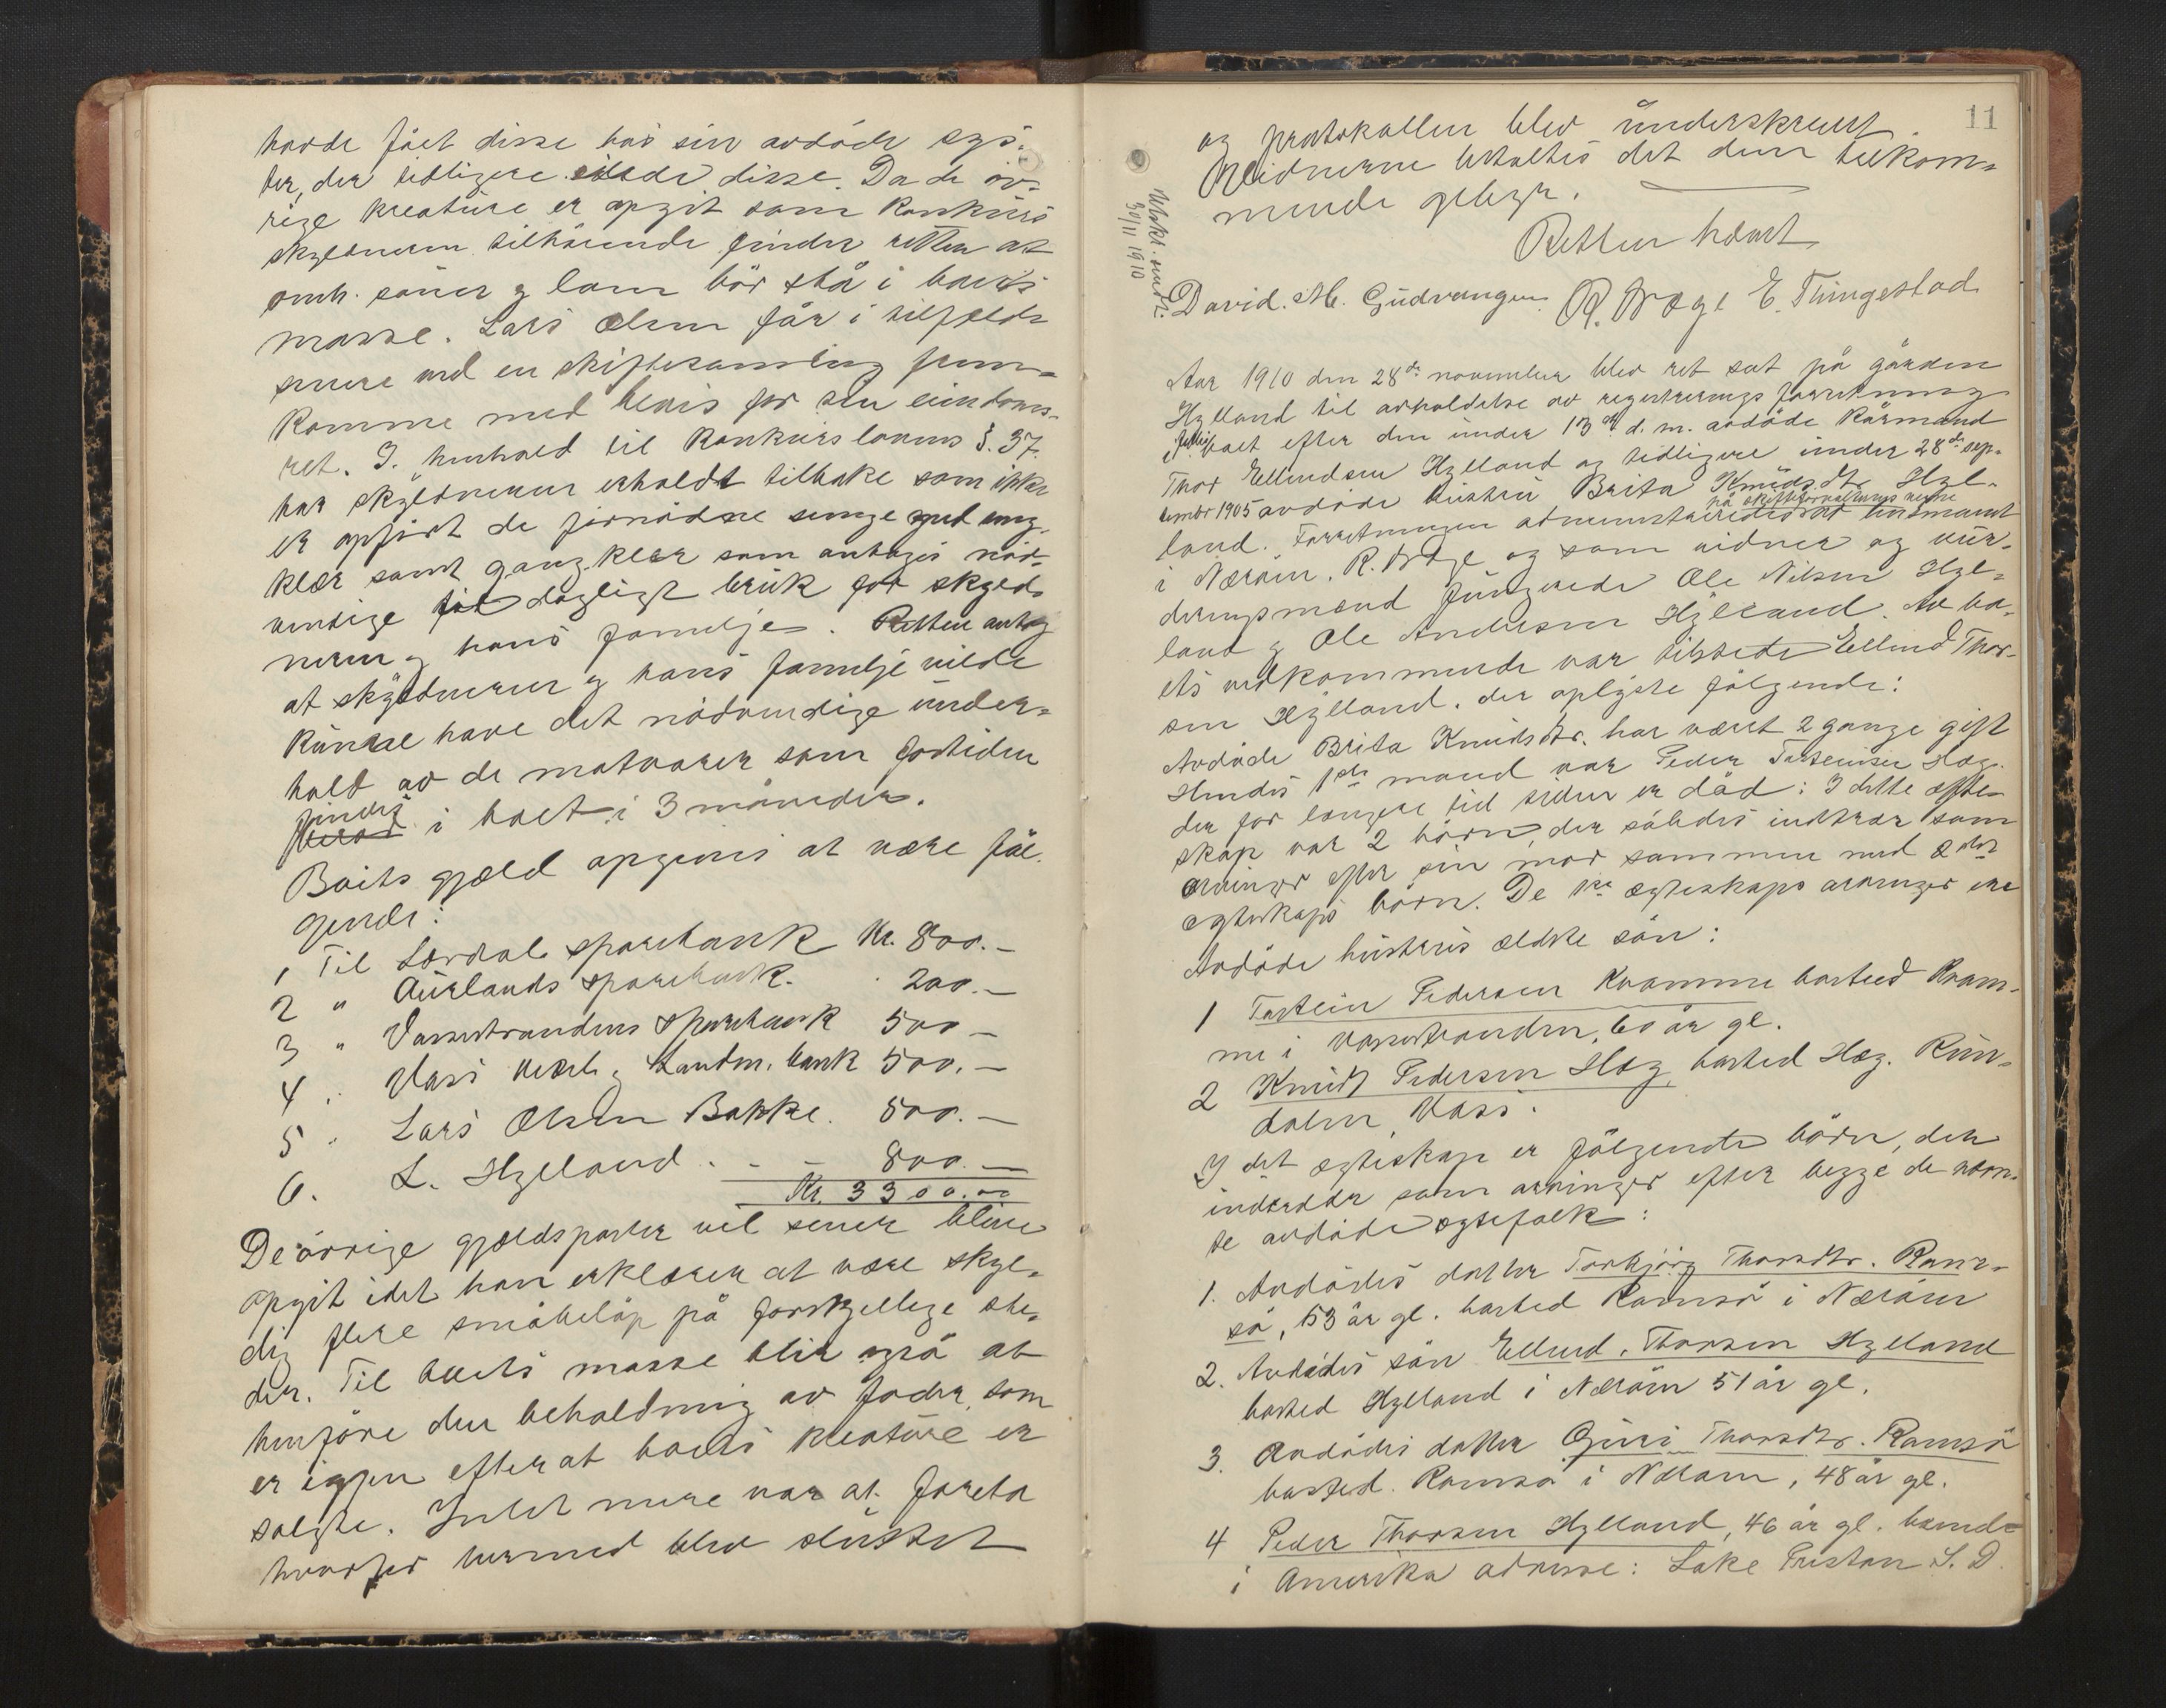 havde fåt disse hos sin avdöde sös-
ter, der tidligere eiede disse. Da de öv-
rige kreature er opgit som konkurs
skyldneren tilhörende finder retten at
omh. sauer og lam bör stå i boets
masse. Lars Olsen får i tilfælde
senere ved en skiftesamling frem-
komme med bevis for sin eiendoms-
ret. I henhold til konkurslovens §. 37.
har skyldneren erholdt tilbake som ikke
er opfört de fornödne senge med seng-
klær samt gangklær som antages nöd-
vendige til dagligt bruk for skyld-
neren og hans familje. Retten antog
at skyldneren og hans familje vilde
kunne have det nödvendige under-
hold av de matvarer som for tiden
findes
i boet i 3 måneder.
Boets gjæld opgives at være föl-
gende:
1 Til Lærdals sparebank Kr. 800.-
2 " Aurlands sparebank. 200.-
3 " Vassstrandens sparebank 500-
4 " Voss Værks. Landm. bank 500.-
5 " Lars Olsen Bakke. 500.-
6. L. Hylland . - - 800.-
Kr. 3300.00
De övrige gjældsposter vil senere blive
opgit idet han erklærer at være skyl-
dig flere småbelöp på forskjellige ste-
der. Til boets masse blir også at
henföre den beholdning av foder, som
er igjen efter at boets kreature er
solgte. Intet mere var at foreta
hvorfor hermed blev sluttet
11
og protokollen blev underskrevet.
Vidnerne betaltes det dem tilkom-
mende gebyr.
Retten hævet
David. M. Gudvangen. R. Wæge E. Thingestad
Utskr. sendt
30/11 1910
Aar 1910 den 28de november blev ret sat på gården
Hylland til avholdelse av registrerings forretning
i fællesboet efter den under 13de d. m. avdöde kårmand
Thor Ellendsen Hylland og tidligere under 28de sep-
tember 1905 avdöde hustru Brita Knudsdtr. Hyl-
på skifteforvalterens vegne
land. Forretningen administreredes av lensmand
i Næröen. R. Wæge og som vidner og vur-
deringsmænd fungerede Ole Nilsen Hyl-
land og Ole Andersen Hylland. Av bo-
ets vedkommende var tilstede Ellend Thor-
sen Hylland. der oplyste fölgende:
Avdöde Brita Knudsdtr. har været 2 gange gift
Hendes 1ste mand var Peder Torsteinsen Hæg.
der for længere tid siden er död: I dette ægte-
skap var 2 börn, der således indtrær som
arvinger efter sin mor sammen med 2det
egteskaps börn. De 1ste ægteskaps arvinger ere
Avdöde hustrus ældste sön:
1 Torstein Pedersen Kvamme bosted Kvam-
me i Vassstranden, 60 år gl.
2 Knud Pedersen Hæg, bosted Hæg. Run-
dalen, Voss.
I det ægteskap er fölgende börn, der
indtræder som arvinger efter begge de nævn-
te avdöde egtefolk:
1. Avdödes datter Torbjörg Thorsdtr. Ram-
sö, 53 år gl. bosted Ramsö i Næröen
2. Avdödes sön Ellend. Thorsen Hylland
bosted Hylland i Næröen 51 år gl.
3. Avdödes datter Guri Thorsdtr. Ramsö
bosted. Ramsö i Næröen, 48 år gl.
4 Peder Thorsen Hylland, 46 år gl. boende
i Amerika adresse: Lake Preston S. D.